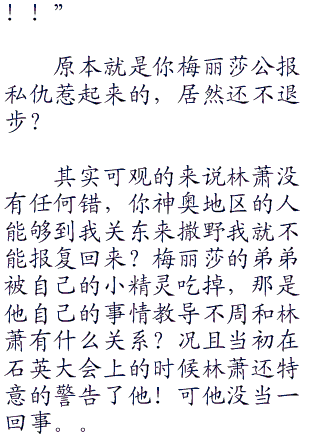 ！！”
原本就是你梅丽莎公报
私仇惹起来的，居然还不退
步？
其实可观的来说林萧没
有任何错，你神奥地区的人
能够到我关东来撒野我就不
能报复回来？梅丽莎的弟弟
被自己的小精灵吃掉，那是
他自己的事情教导不周和林
萧有什么关系？况且当初在
石英大会上的时候林萧还特
意的警告了他！可他没当一
回事。。